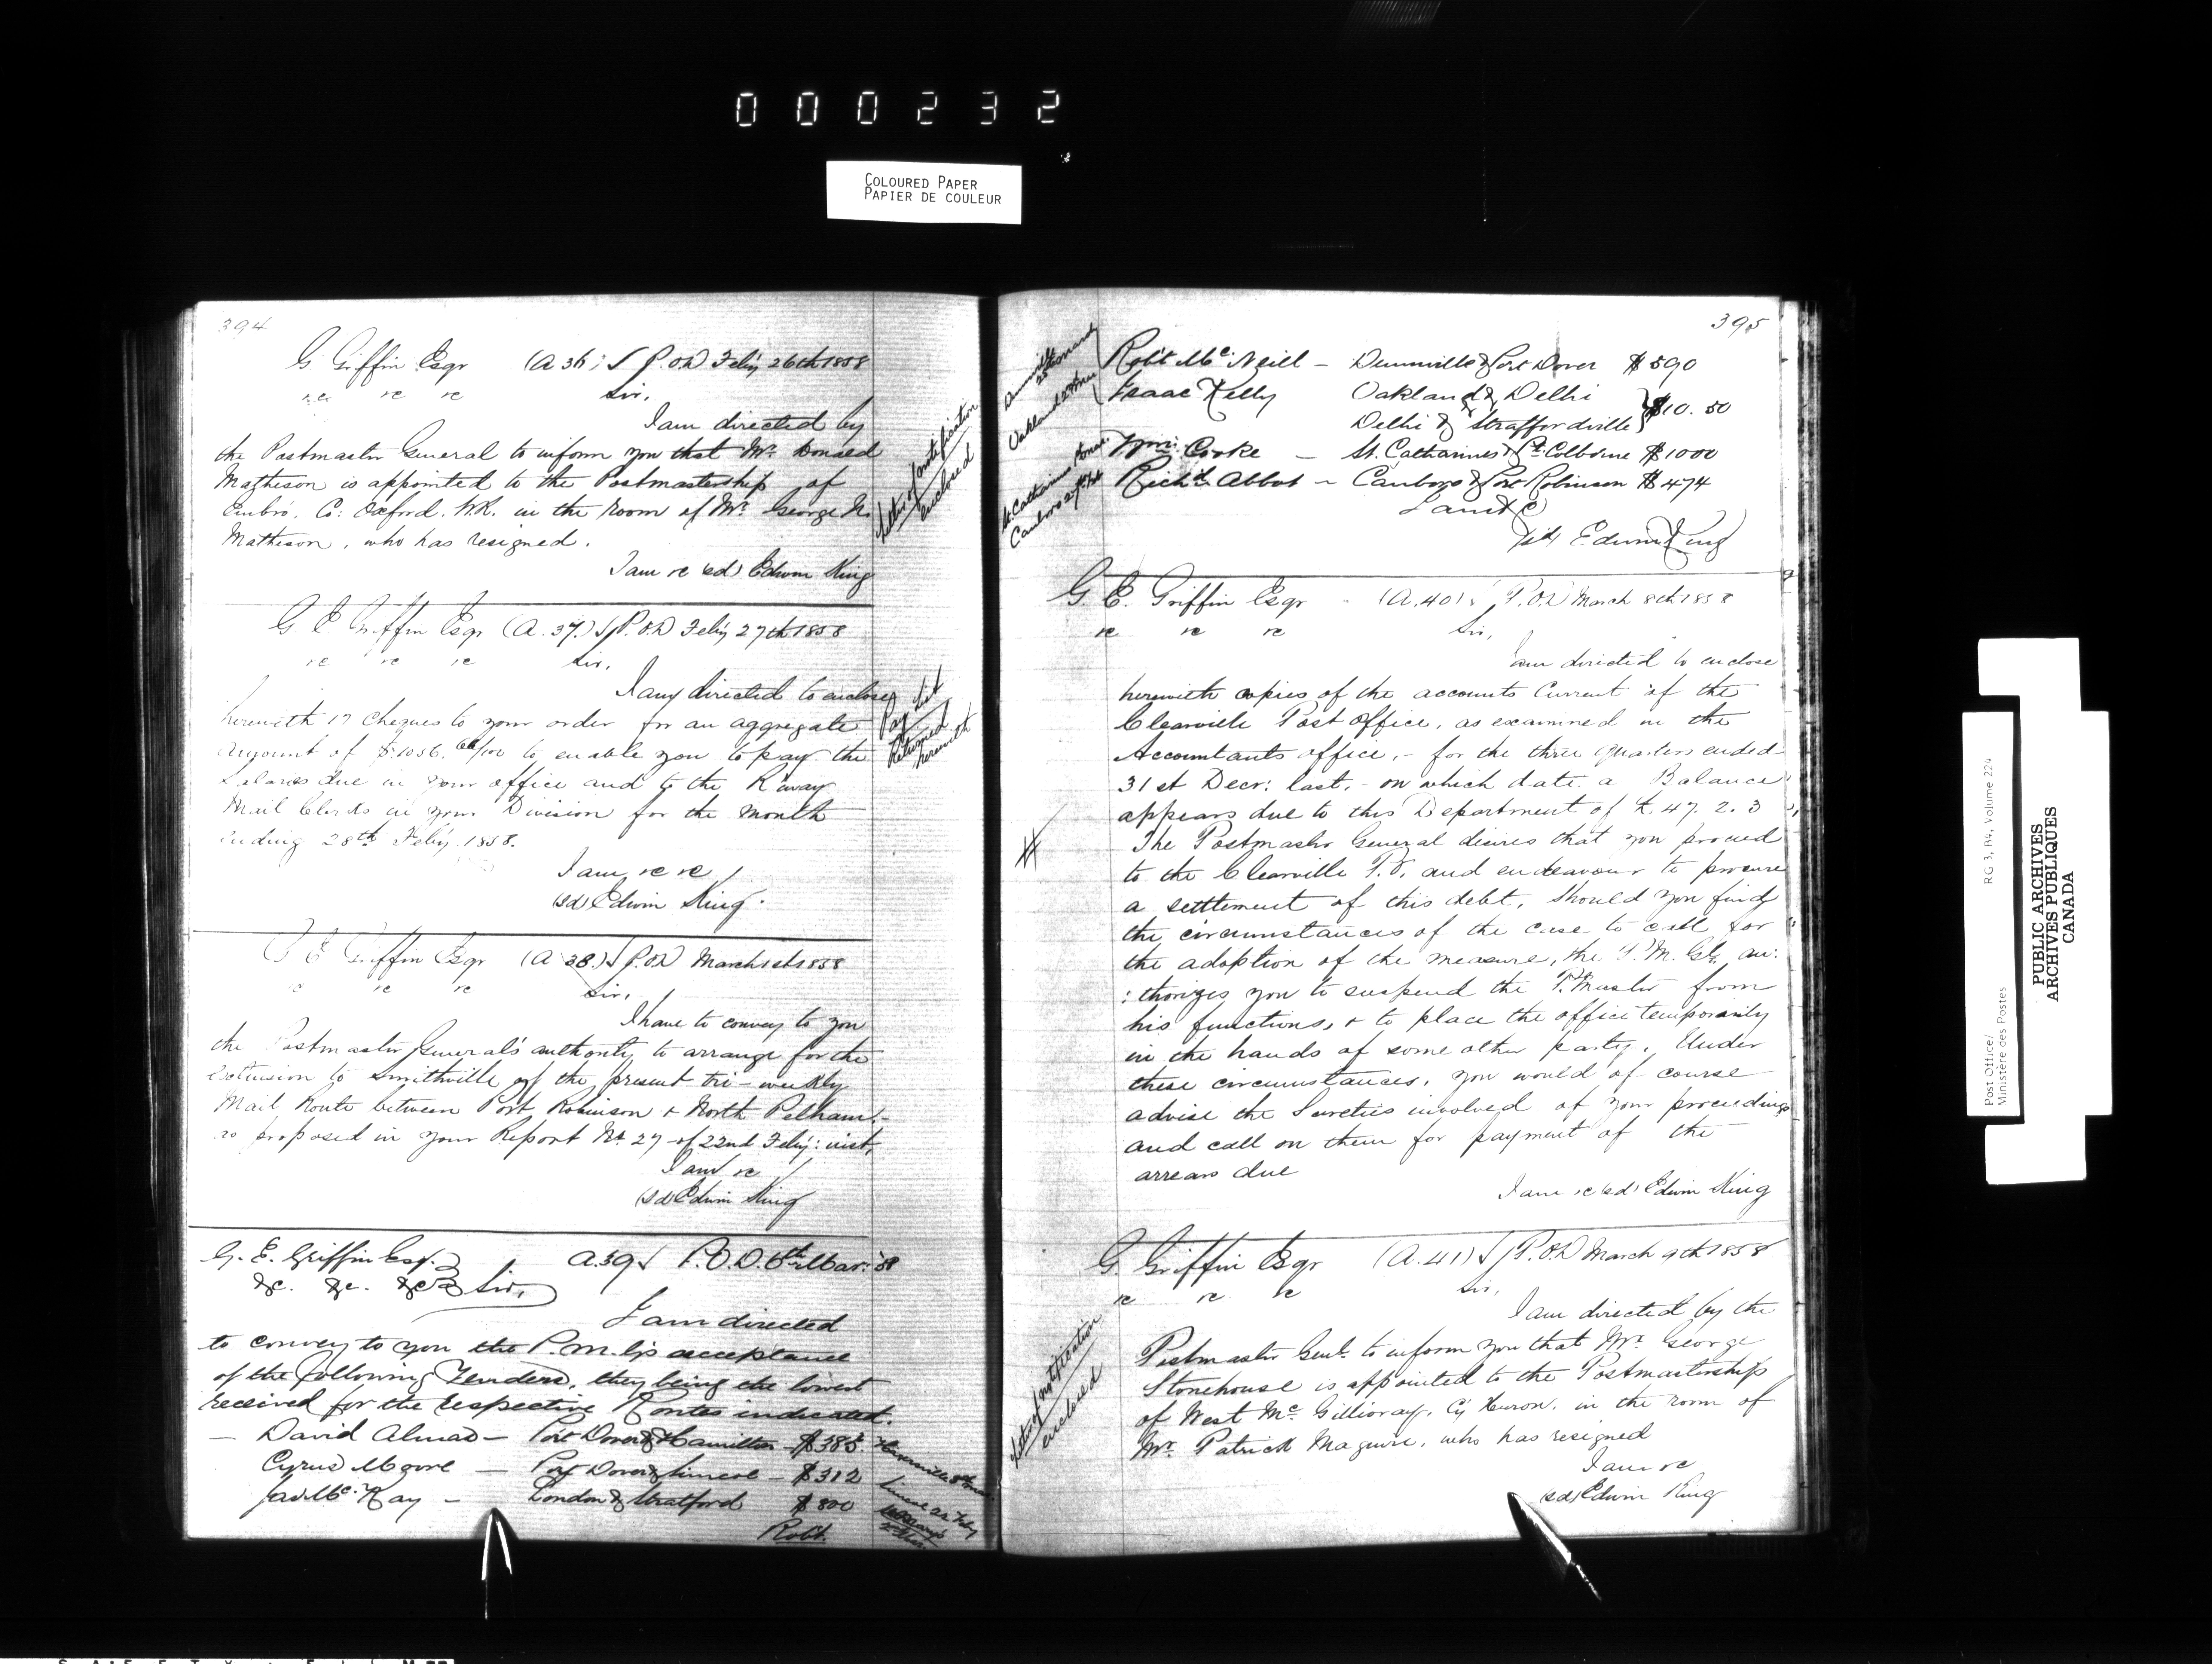 000232
COLOURED PAPER
PAPIER DE COULEUR
394
G Griffin Esqr (A 36) P.O.D Feby 26th 1858
&c &c &c Sir,
I am directed by
the Postmaster General to inform you that Mr. Donald
Matheson is appointed to the Postmastership of
Embro, Co: Oxford. W.R. in the room of Mr. George
Matheson, who has resigned.
I am &c (sd) Edwin King
Letter of notification
enclosed
G E Griffin Esqr (A. 37.) P.O.D Feby 27th 1858
&c &c &c Sir,
I am directed to enclose
herewith 17 Cheques to your order for an aggregate
amount of $1056. 66/100 to enable you to pay the
Salaries due in your office and to the R'way
Mail Clerks in your Division for the month
ending 28th Feby 1858.
I am, &c &c
(sd) Edwin King.
Pay List
Returned
herewith
G E Griffin Esqr (A 38.) P.O.D March 1st 1858
&c &c &c Sir,
I have to convey to you
the Postmaster General's authority to arrange for the
extension to Smithville of the present tri-weekly
Mail Route between Port Robinson & North Pelham,
as proposed in your Report No. 27 of 22nd Feby: inst.
I am &c
(sd) Edwin King
G. E. Griffin Esq. A.39 P.O.D. 6th Mar: 58
&c. &c. &c Sir,
I am directed
to convey to you the P.M.G's acceptance
of the following Tenders, they being the lowest
received for the respective Routes indicated.
— David Almas — Port Dover & Hamilton — $385
Cyrus Moore — Port Dover & Simcoe — $312
Jas. Mc.Kay — London & Stratford $800
Robt.
Simcoe 22 Feby
395
Robt Mc.Neill — Dunnville & Port Dover $590
Isaac Kelly Oakland & Delhi
Delhi & Straffordville } $10.50
Wm: Cooke — St. Catharines & Pt. Colborne $1000
Richd. Abbot — Canboro & Port Robinson $474
I am &c
(sd) Edwin King
Dunnville
Oakland
St. Catharines
Canboro
G. E. Griffin Esqr (A.40) P.O.D March 8th 1858
&c &c &c Sir,
I am directed to enclose
herewith copies of the accounts Current of the
Clearville Post Office, as examined in the
Accountants office, - for the three quarters ended
31st Decr: last, - on which date a Balance
appears due to this Department of £.47.2.3
#
The Postmaster General desires that you proceed
to the Clearville P.O. and endeavour to procure
a settlement of this debt, Should you find
the circumstances of the case to call for
the adoption of the measure, the P.M. Gl. au:
:thorizes you to suspend the P.Master from
his functions, & to place the office temporarily
in the hands of some other party. Under
these circumstances, you would of course
advise the Sureties involved of your proceedings
and call on them for payment of the
arrears due
I am &c (sd) Edwin King
G. Griffin Esqr (A.41) P.O.D March 9th 1858
&c &c &c Sir,
I am directed by the
Postmaster Genl. to inform you that Mr. George
Stonehouse is appointed to the Postmastership
of West Mc.Gillivray, Cy Huron, in the room of
Mr. Patrick Maguire, who has resigned
I am &c
(sd) Edwin King
Letter of notification
enclosed
Post Office/
Ministère des Postes
RG 3, B4, Volume 224
PUBLIC ARCHIVES
ARCHIVES PUBLIQUES
CANADA